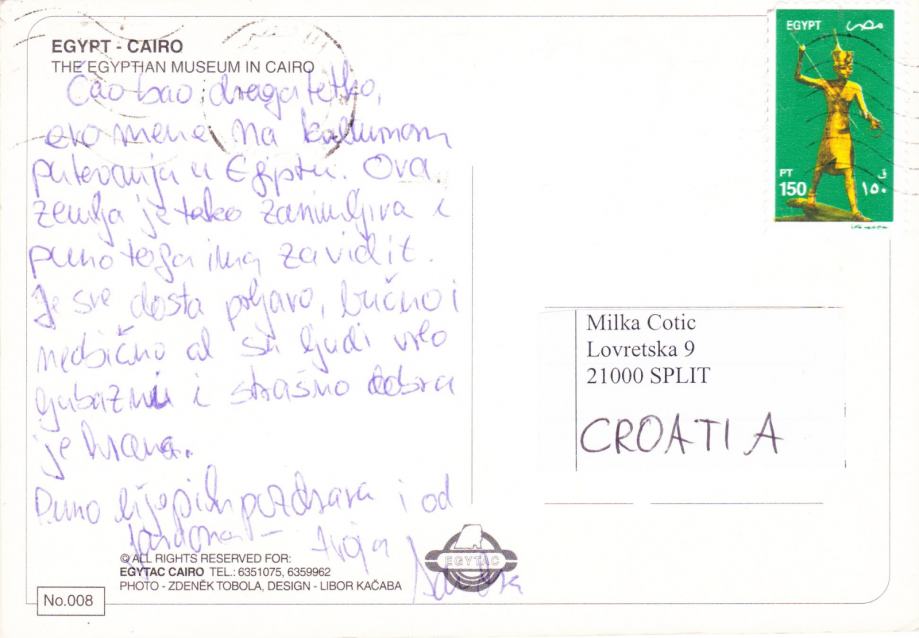 EGYPT - CAIRO
THE EGYPTIAN MUSEUM IN CAIRO
Ćao bao draga tetko,
evo mene na kulturnom
putovanju u Egiptu. Ova
zemlja je tako zanimljiva i
puno toga ima za vidit.
Je sve dosta prljavo, bučno i
neobično al su ljudi vrlo
ljubazni i strašno dobra
je hrana.
Puno lijepih pozdrava i od
- tvoja
© ALL RIGHTS RESERVED FOR:
EGYTAC CAIRO TEL.: 6351075, 6359962
PHOTO - ZDENĚK TOBOLA, DESIGN - LIBOR KAČABA
No.008
EGYTAC
EGYPT مصر
PT 150 ق ١٥٠
Milka Cotic
Lovretska 9
21000 SPLIT
CROATIA